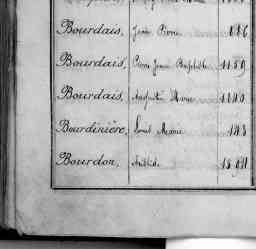 Bourdais, Jean Pierre 886
Bourdais, Pierre Jean Baptiste 1189
Bourdais, Augustin Marie 1140
Bourdinière, Louis Marie 143
Bourdon, Aristide 1891